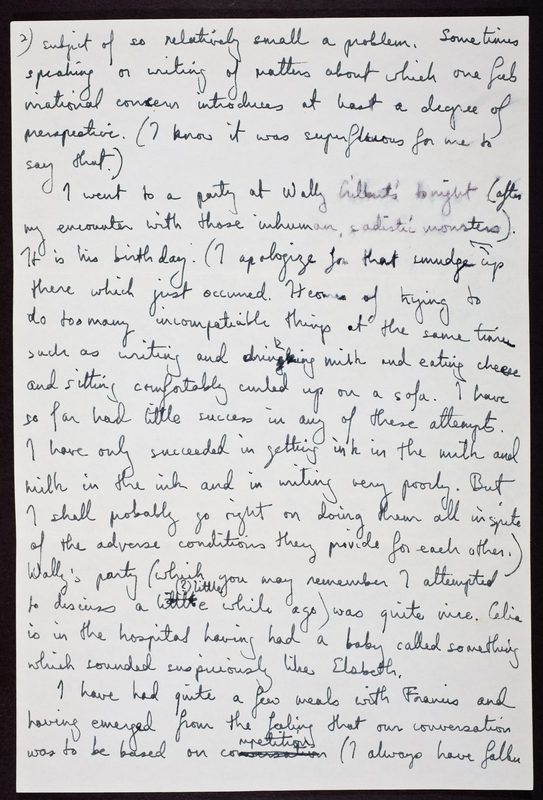 2) subject of so relatively small a problem. Sometimes
speaking or writing of matters about which one feels
irrational concern introduces at least a degree of
perspective. (I know it was superfluous for me to
say that.)
I went to a party at Wally Gilbert's tonight (after
my encounter with those inhuman, sadistic monsters).
It is his birthday. (I apologize for that smudge up
there which just occurred. It comes of trying to
do too many incompatible things at the same time
such as writing and drinking milk and eating cheese
and sitting comfortably curled up on a sofa. I have
so far had little success in any of these attempts.
I have only succeeded in getting ink in the milk and
milk in the ink and in writing very poorly. But
I shall probably go right on doing them all inspite
of the adverse conditions they provide for each other.)
Wally's party (which you may remember I attempted
to discuss a (?) little while ago) was quite nice. Celia
is in the hospital having had a baby called something
which sounded suspiciously like Elsbeth.
I have had quite a few meals with Francis and
having emerged from the feeling that our conversation
was to be based on repetitions (I always have fallen